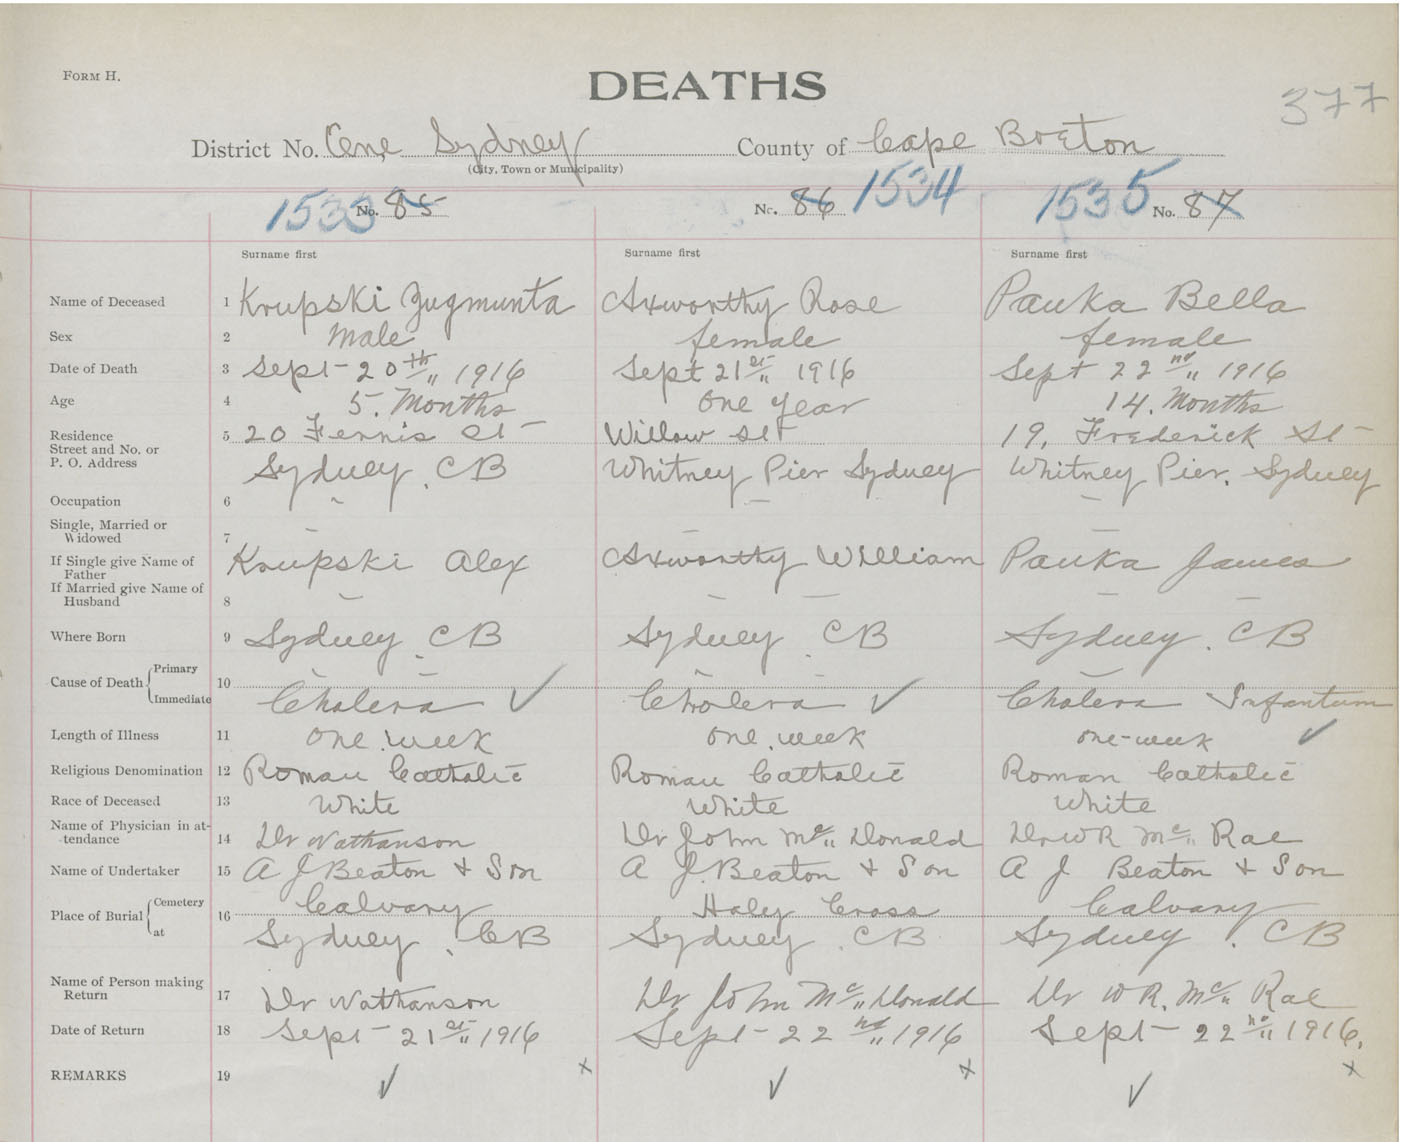 FORM H.
DEATHS
377
District No. One Sydney County of Cape Breton
(City, Town or Municipality)
1533 No. 85 No. 86 1534 1535 No. 87
Surname first Surname first Surname first
Name of Deceased 1 Krupski Zugmunta Axworthy Rose Pauka Bella
Sex 2 Male female female
Date of Death 3 Sept - 20th 1916 Sept 21st 1916 Sept 22nd 1916
Age 4 5. Months One Year 14. Months
Residence 5 20 Ferris St - Willow St 19, Frederick St -
Street and No. or
P. O. Address Sydney, CB Whitney Pier Sydney Whitney Pier. Sydney
Occupation 6 ~ - -
Single, Married or
Widowed 7 - - -
If Single give Name of
Father Krupski Alex Axworthy William Pauka James
If Married give Name of
Husband 8 - - - - -
Where Born 9 Sydney. CB Sydney. CB Sydney. CB
Cause of Death Primary 10 - - - - -
Immediate Cholera ✓ Cholera ✓ Cholera Infantum
Length of Illness 11 One week one week one-week ✓
Religious Denomination 12 Roman Catholic Roman Catholic Roman Catholic
Race of Deceased 13 White White White
Name of Physician in at-
tendance 14 Dr Nathanson Dr John Mc Donald Dr W R Mc Rae
Name of Undertaker 15 A J Beaton + Son A J. Beaton + Son A J Beaton + Son
Place of Burial Cemetery 16 Calvary Holy Cross Calvary
at Sydney. CB Sydney. CB Sydney. CB
Name of Person making
Return 17 Dr Nathanson Dr John Mc Donald Dr W R. Mc Rae
Date of Return 18 Sept - 21st 1916 Sept - 22nd 1916 Sept - 22nd 1916.
REMARKS 19 ✓ x ✓ x ✓ x